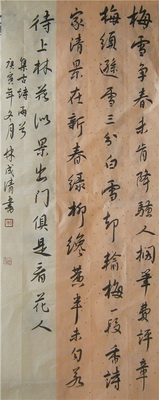 梅雪争春未肯降騷人擱筆費評章
梅須遜雪三分白雪却輸梅一段香詩
家清景在新春緑柳纔黄半未匀若
待上林花似錦出门俱是看花人
集古诗两首
庚寅年冬月林成清書